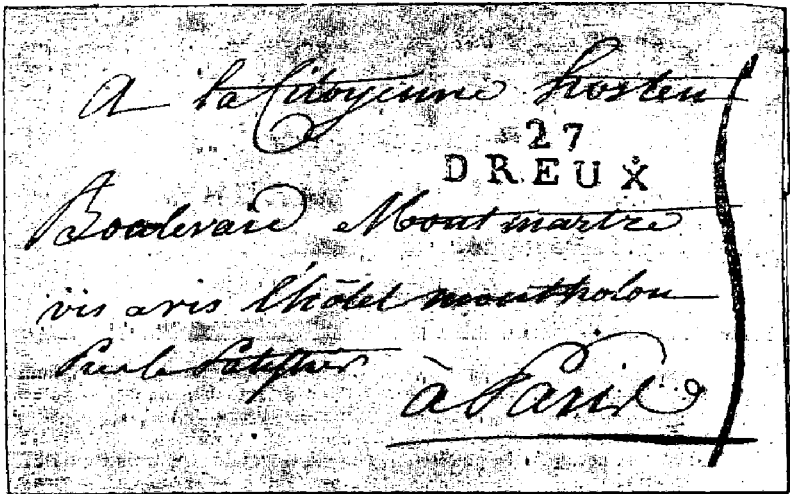 A la Citoyenne hosten
27
DREUX
Boulevard Montmartre
vis avis l'hôtel montholon
à Paris